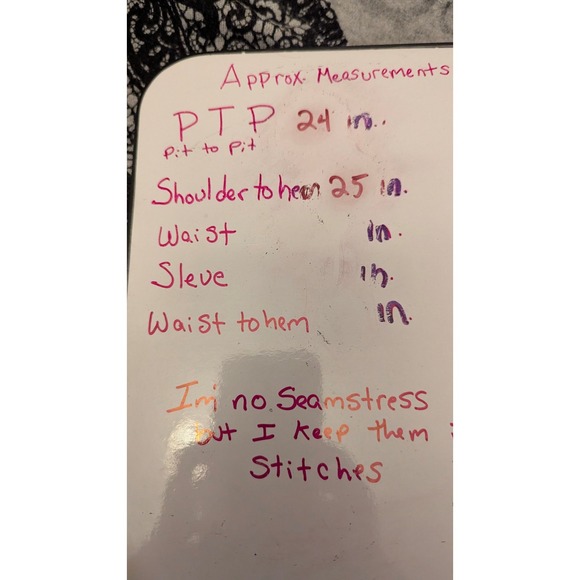 Approx. Measurements
PTP 24 in.
pit to pit
Shoulder to hem 25 in.
Waist in.
Sleve in.
Waist to hem in.
Im no Seamstress
but I keep them
Stitches